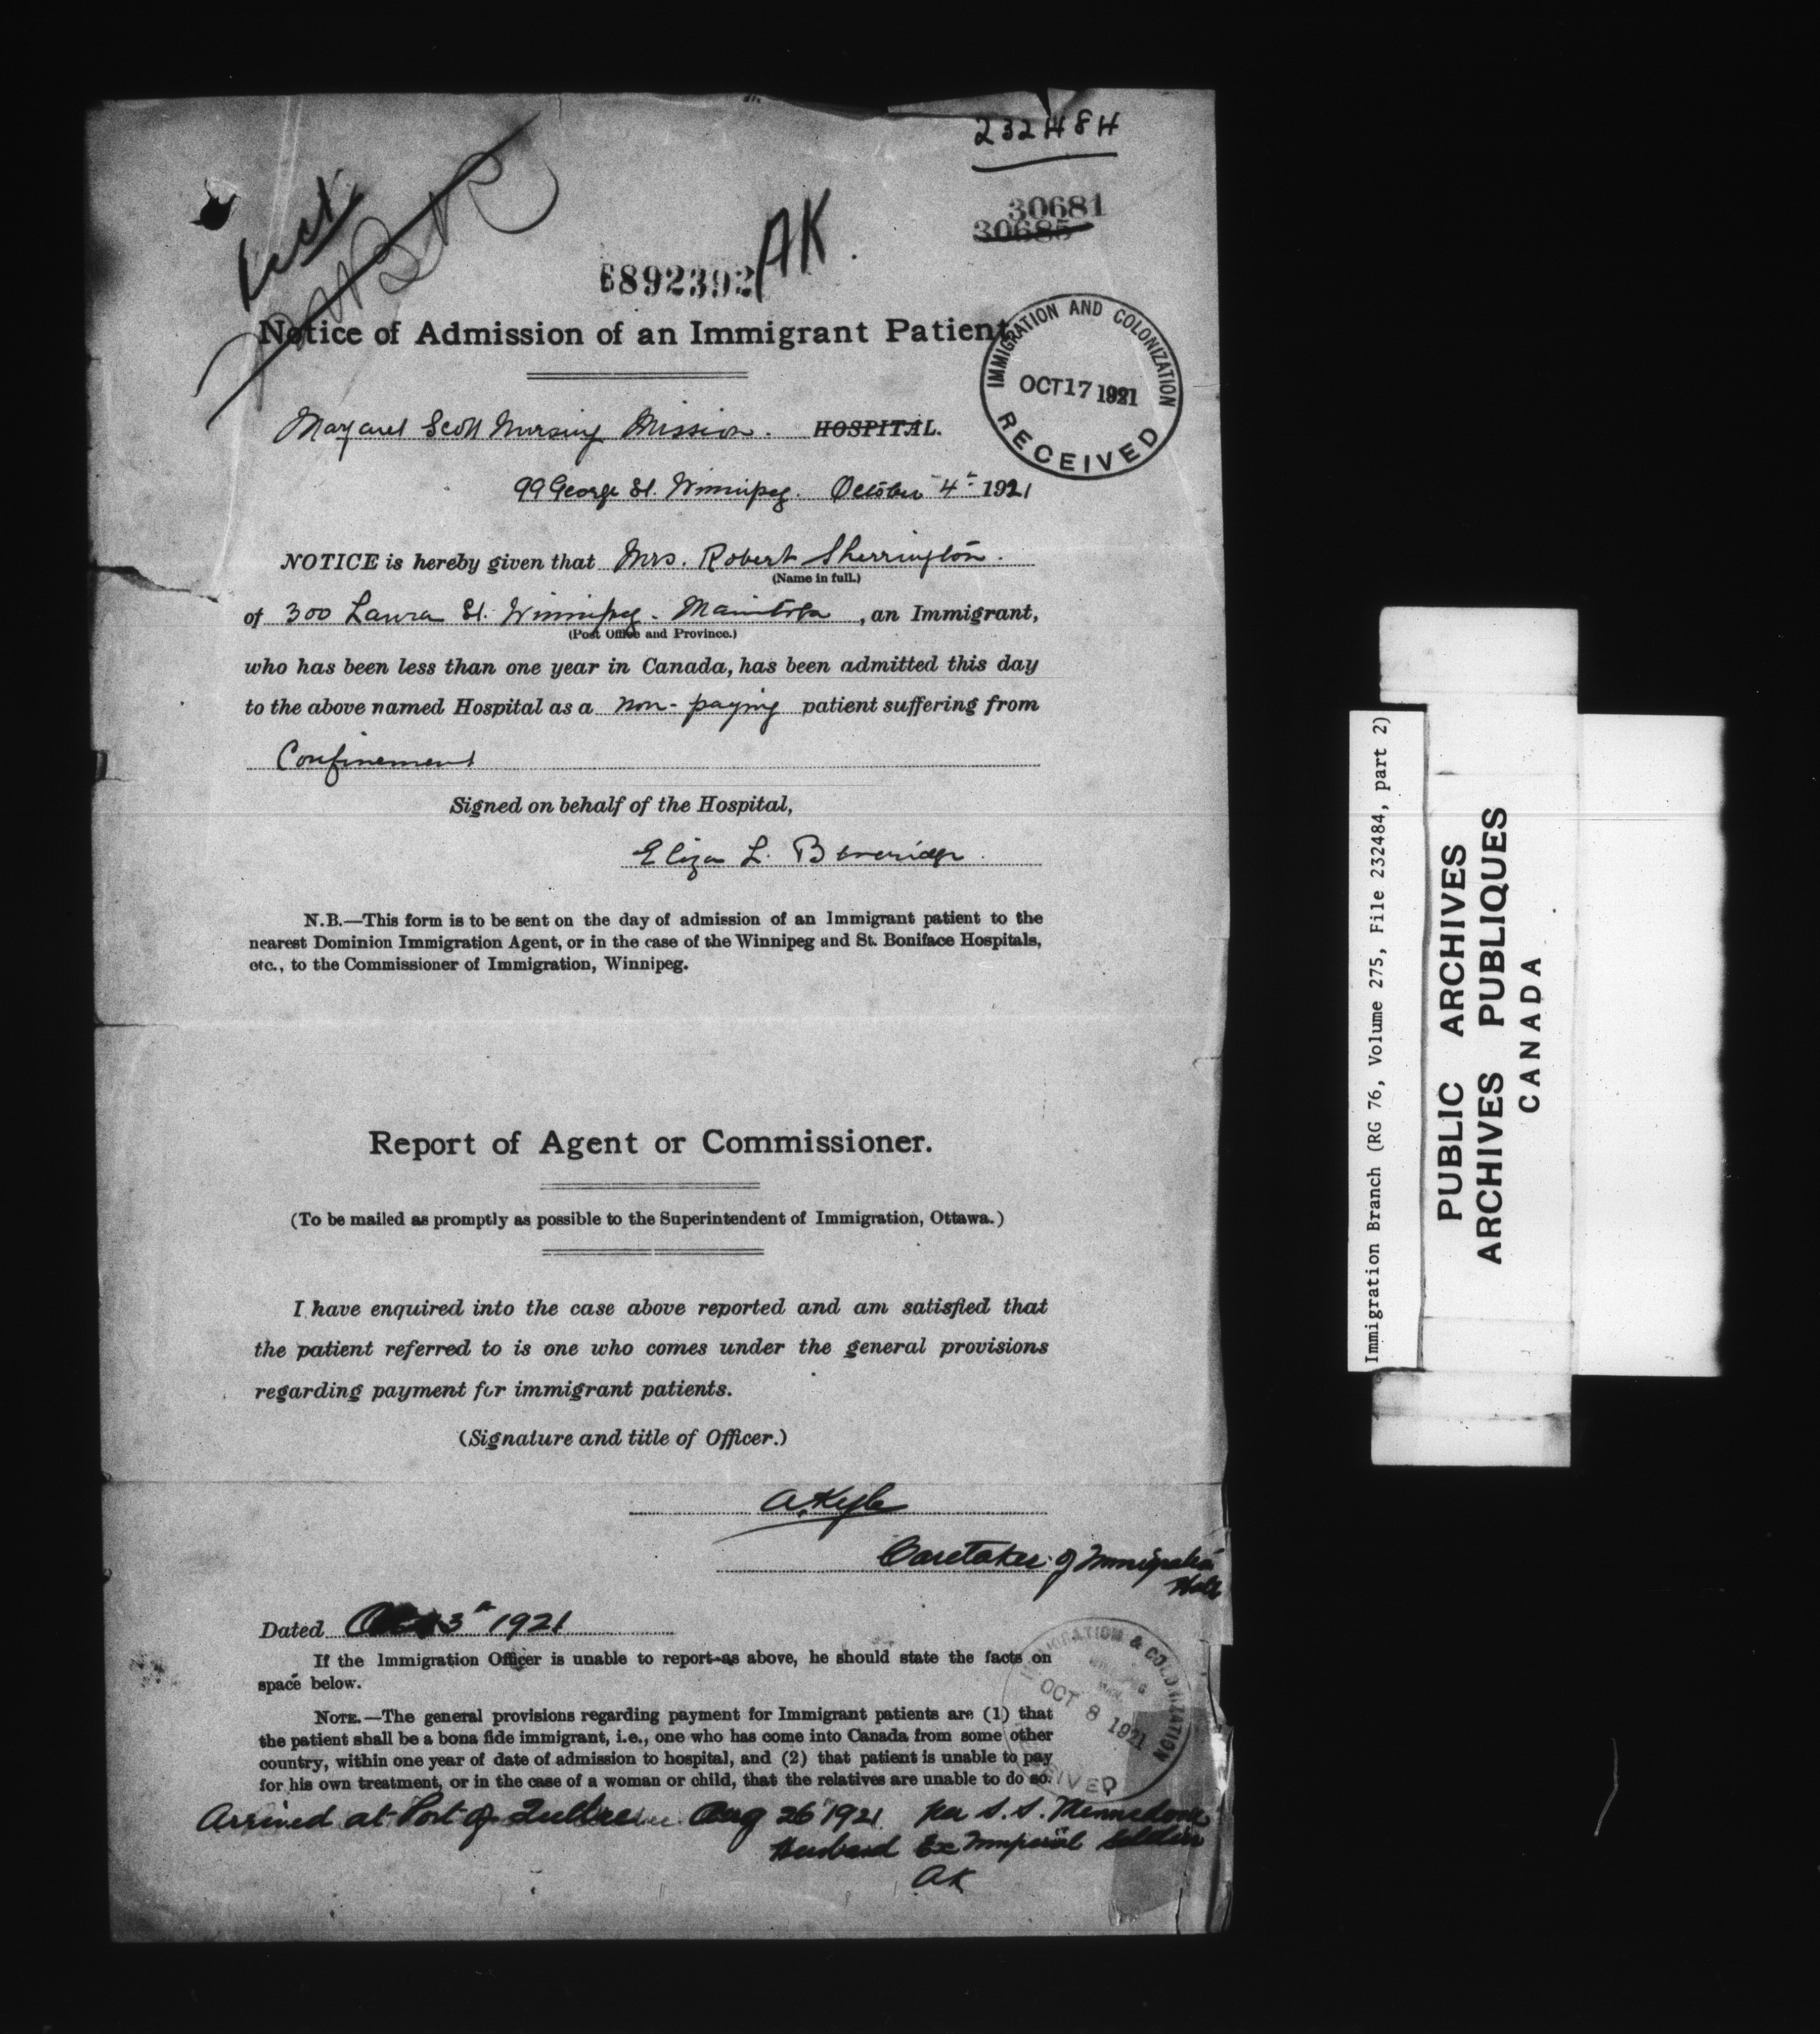 232484
30681
30685
892392
AK.
Notice of Admission of an Immigrant Patient
IMMIGRATION AND COLONIZATION
OCT 17 1921
RECEIVED
Margaret Scott Nursing Mission. HOSPITAL.
99 George St. Winnipeg. October 4th 1921
NOTICE is hereby given that Mrs. Robert Sherrington.
(Name in full.)
of 300 Laura St. Winnipeg. Manitoba, an Immigrant,
(Post Office and Province.)
who has been less than one year in Canada, has been admitted this day
to the above named Hospital as a non-paying patient suffering from
Confinement
Signed on behalf of the Hospital,
Eliza L. Beveridge.
N.B.—This form is to be sent on the day of admission of an Immigrant patient to the
nearest Dominion Immigration Agent, or in the case of the Winnipeg and St. Boniface Hospitals,
etc., to the Commissioner of Immigration, Winnipeg.
Report of Agent or Commissioner.
(To be mailed as promptly as possible to the Superintendent of Immigration, Ottawa.)
I have enquired into the case above reported and am satisfied that
the patient referred to is one who comes under the general provisions
regarding payment for immigrant patients.
(Signature and title of Officer.)
Caretaker of Immigration
Hall
Dated 1921
If the Immigration Officer is unable to report as above, he should state the facts on
space below.
OCT 8 1921
NOTE.—The general provisions regarding payment for Immigrant patients are (1) that
the patient shall be a bona fide immigrant, i.e., one who has come into Canada from some other
country, within one year of date of admission to hospital, and (2) that patient is unable to pay
for his own treatment, or in the case of a woman or child, that the relatives are unable to do so.
Arrived at Port of Quebec Aug 26 1921 per S.S. Minnedosa
Husband Ex Imperial Soldier
AK
Immigration Branch (RG 76, Volume 275, File 232484, part 2)
PUBLIC ARCHIVES
ARCHIVES PUBLIQUES
CANADA